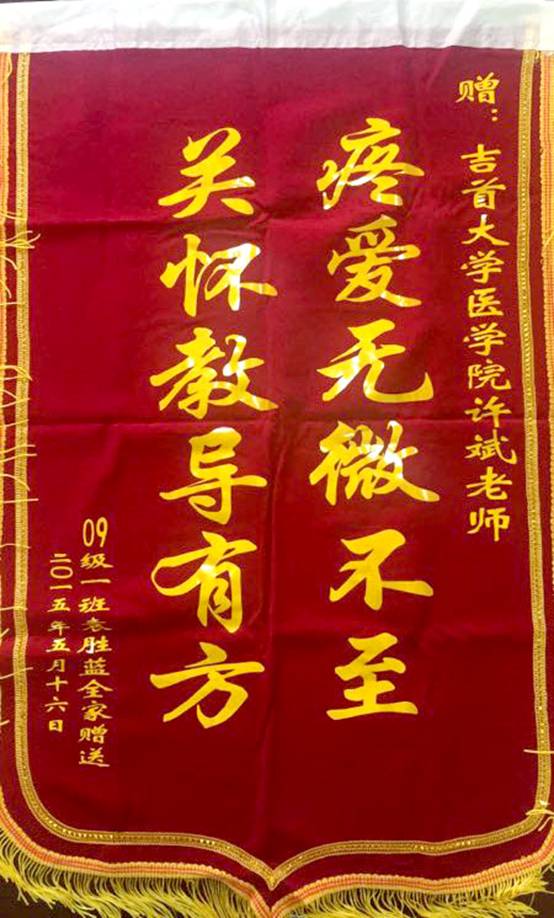 赠：吉首大学医学院许斌老师
疼爱无微不至
关怀教导有方
09级一班袁胜蓝全家赠送
二〇一五年五月十六日